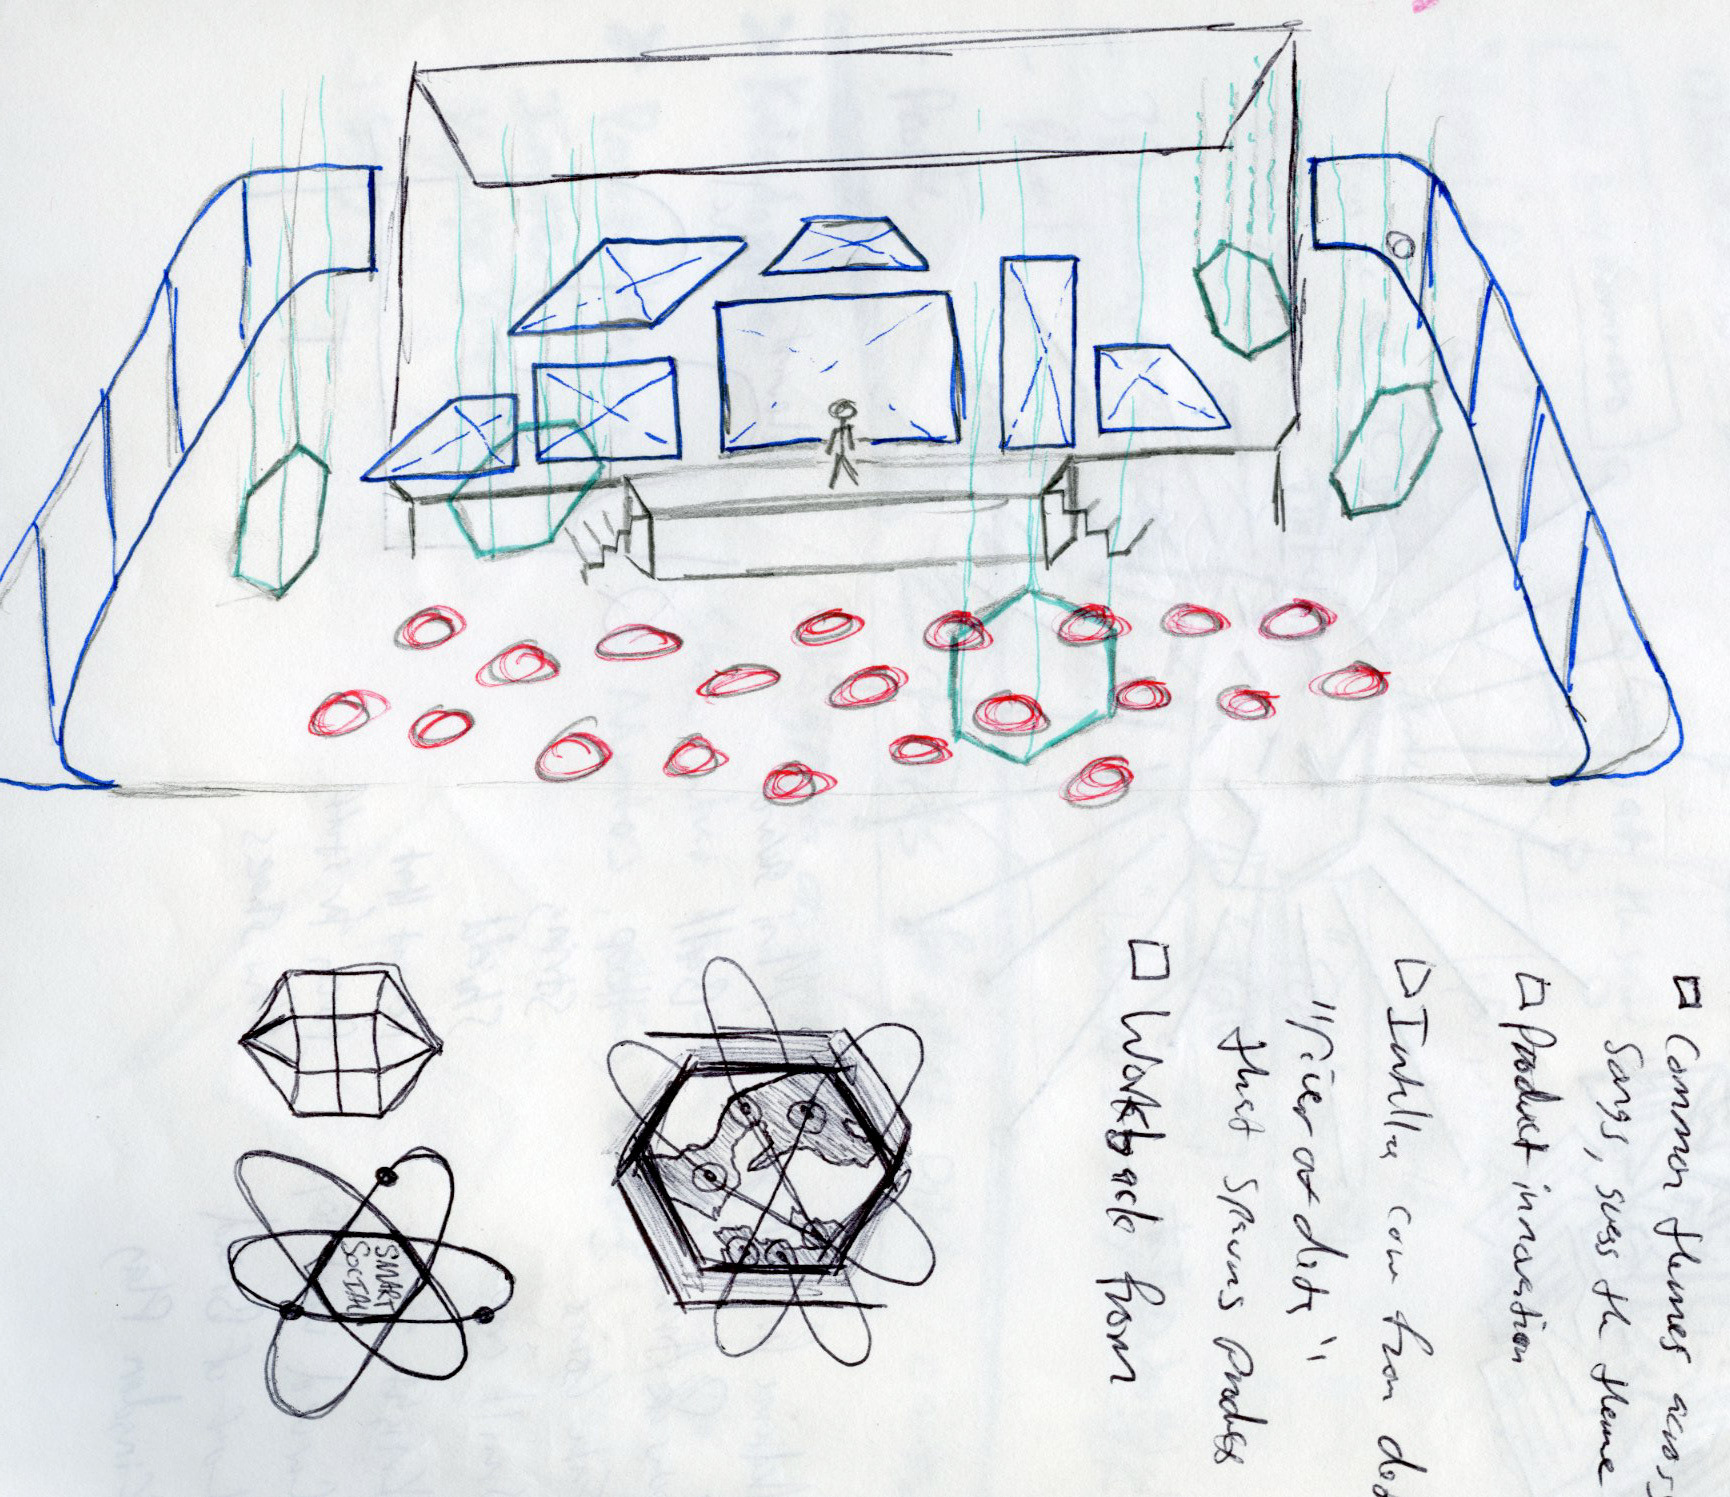 ☐ Common themes across
Songs, guess the theme
☐ Product innovation
☐ Intella com from dot
that spawns product
☐ Work back from
SMART
SOCIAL